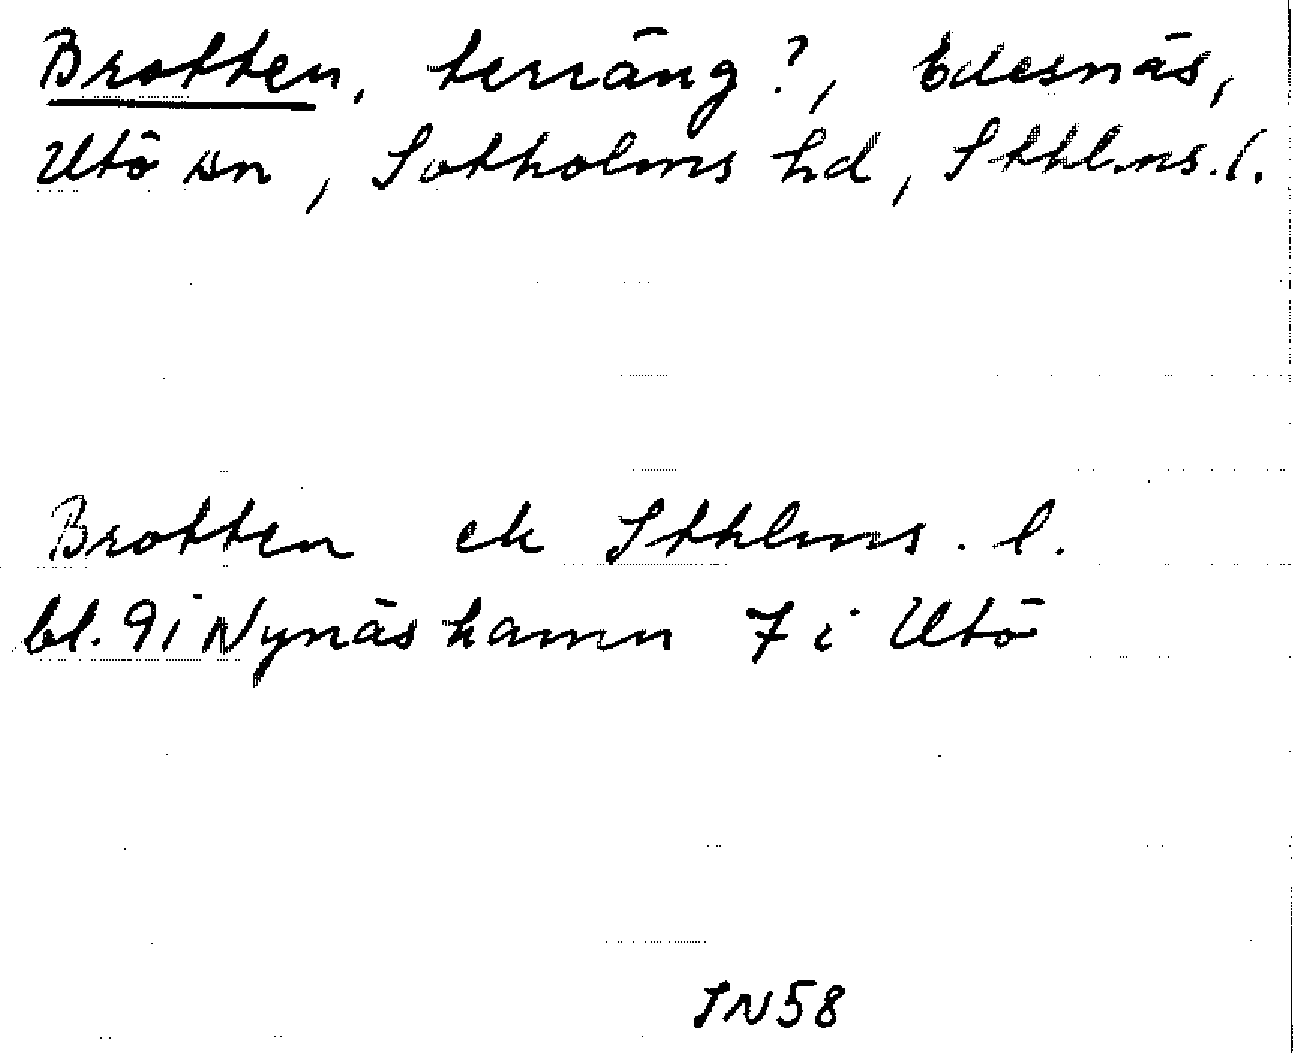 Brotten, terräng?, Edesnäs,
Utö sn, Sotholms hd, Sthlms. l.
Brotten ek Sthlms. l.
bl. 9i Nynäshamn 7 i Utö
IN58